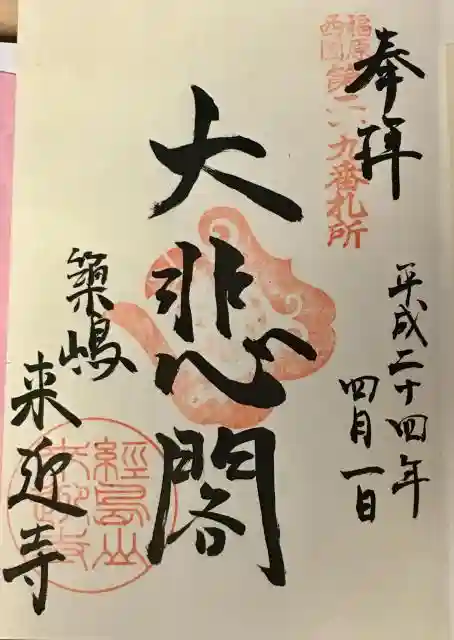 奉拝
福原
西國
第二十九番札所
平成二十四年
四月一日
大悲閣
築嶋
来迎寺
經島山
来迎寺